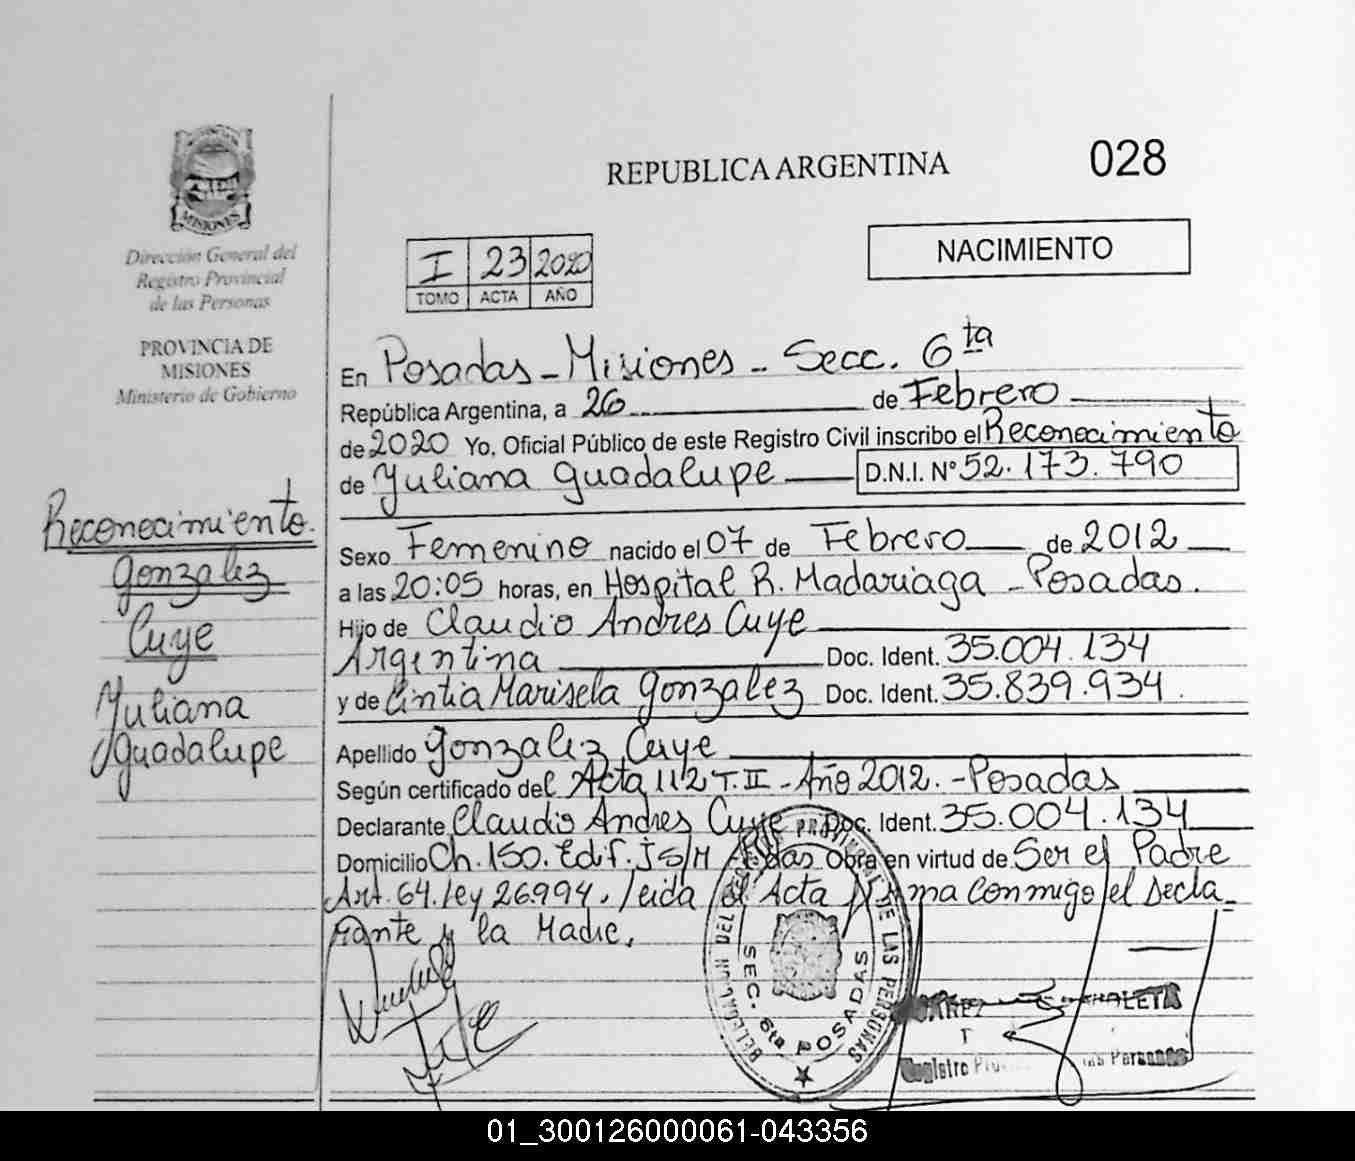 MISIONES
Dirección General del
Registro Provincial
de las Personas
PROVINCIA DE
MISIONES
Ministerio de Gobierno
REPUBLICA ARGENTINA
028
NACIMIENTO
I 23 2020
TOMO ACTA AÑO
En Posadas - Misiones - Secc. 6ta
República Argentina, a 26 de Febrero
de 2020 Yo, Oficial Público de este Registro Civil inscribo el Reconocimiento
de Yuliana Guadalupe D.N.I. N° 52.173.790
Sexo Femenino nacido el 07 de Febrero de 2012
a las 20:05 horas, en Hospital R. Madariaga - Posadas.
Hijo de Claudio Andres Cuye
Argentina Doc. Ident. 35.004.134
y de Cintia Marisela Gonzalez Doc. Ident. 35.839.934.
Apellido Gonzalez Cuye
Según certificado del Acta 112 T. II - Año 2012. - Posadas
Declarante Claudio Andres Cuye Doc. Ident. 35.004.134
Domicilio Ch. 150. Edif. J S/N Obra en virtud de Ser el Padre
Art. 64. ley 26994. leida el Acta conmigo el decla-
rante y la Madre.
Reconocimiento.
Gonzalez
Cuye
Yuliana
Guadalupe
DELEGACION DEL REGISTRO PROVINCIAL DE LAS PERSONAS
SEC. 6ta POSADAS
Registro
las Personas
01_300126000061-043356